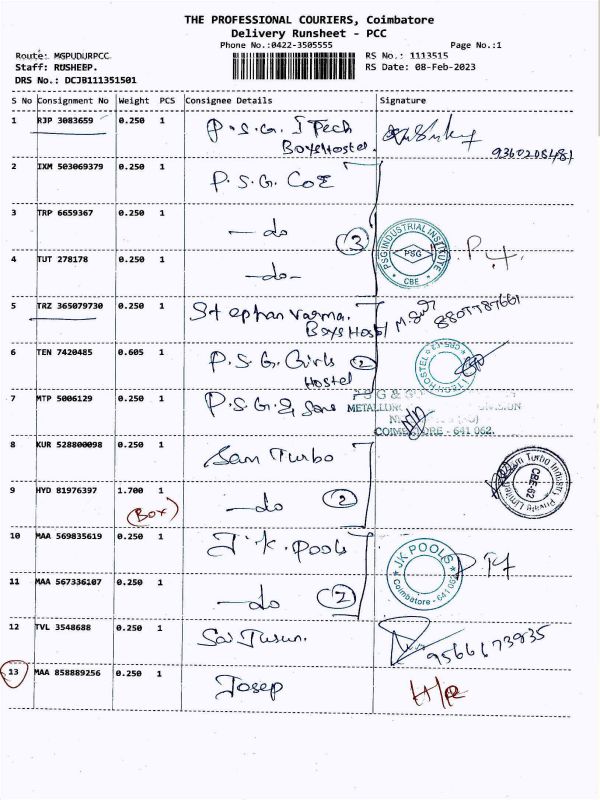 THE PROFESSIONAL COURIERS, Coimbatore
Delivery Runsheet - PCC
Phone No.:0422-3505555
Page No.:1
Route: MGPUDURPCC
RS No.: 1113515
Staff: RUSHEEP.
RS Date: 08-Feb-2023
DRS No.: DCJB111351501
S No Consignment No Weight PCS Consignee Details Signature
1 RJP 3083659 0.250 1 P.S.G. I Tech
Boys Hostel.
9360208481
2 IXM 503069379 0.250 1 P.S.G. COE
3 TRP 6659367 0.250 1 — do
3
PSG INDUSTRIAL INSTITUTE
PSG
CBE
4 TUT 278178 0.250 1 — do -
5 TRZ 365079730 0.250 1 Stephan Varma.
Boys Hostel
8807787661
6 TEN 7420485 0.605 1 P.S.G. Girls 2
Hostel
7 MTP 5006129 0.250 1 P.S.G. & Sons
DIVISION
COIMBATORE - 641 062.
8 KUR 528800098 0.250 1 Sam Turbo
Sam Turbo Industry Private Limited
CBE-62
9 HYD 81976397 1.700 1 — do 2
(Box)
10 MAA 569835619 0.250 1 J.K. Pools
JK POOLS
Coimbatore - 641 062
11 MAA 567336107 0.250 1 — do 2
12 TVL 3548688 0.250 1
9566173935
13 MAA 858889256 0.250 1 Josep